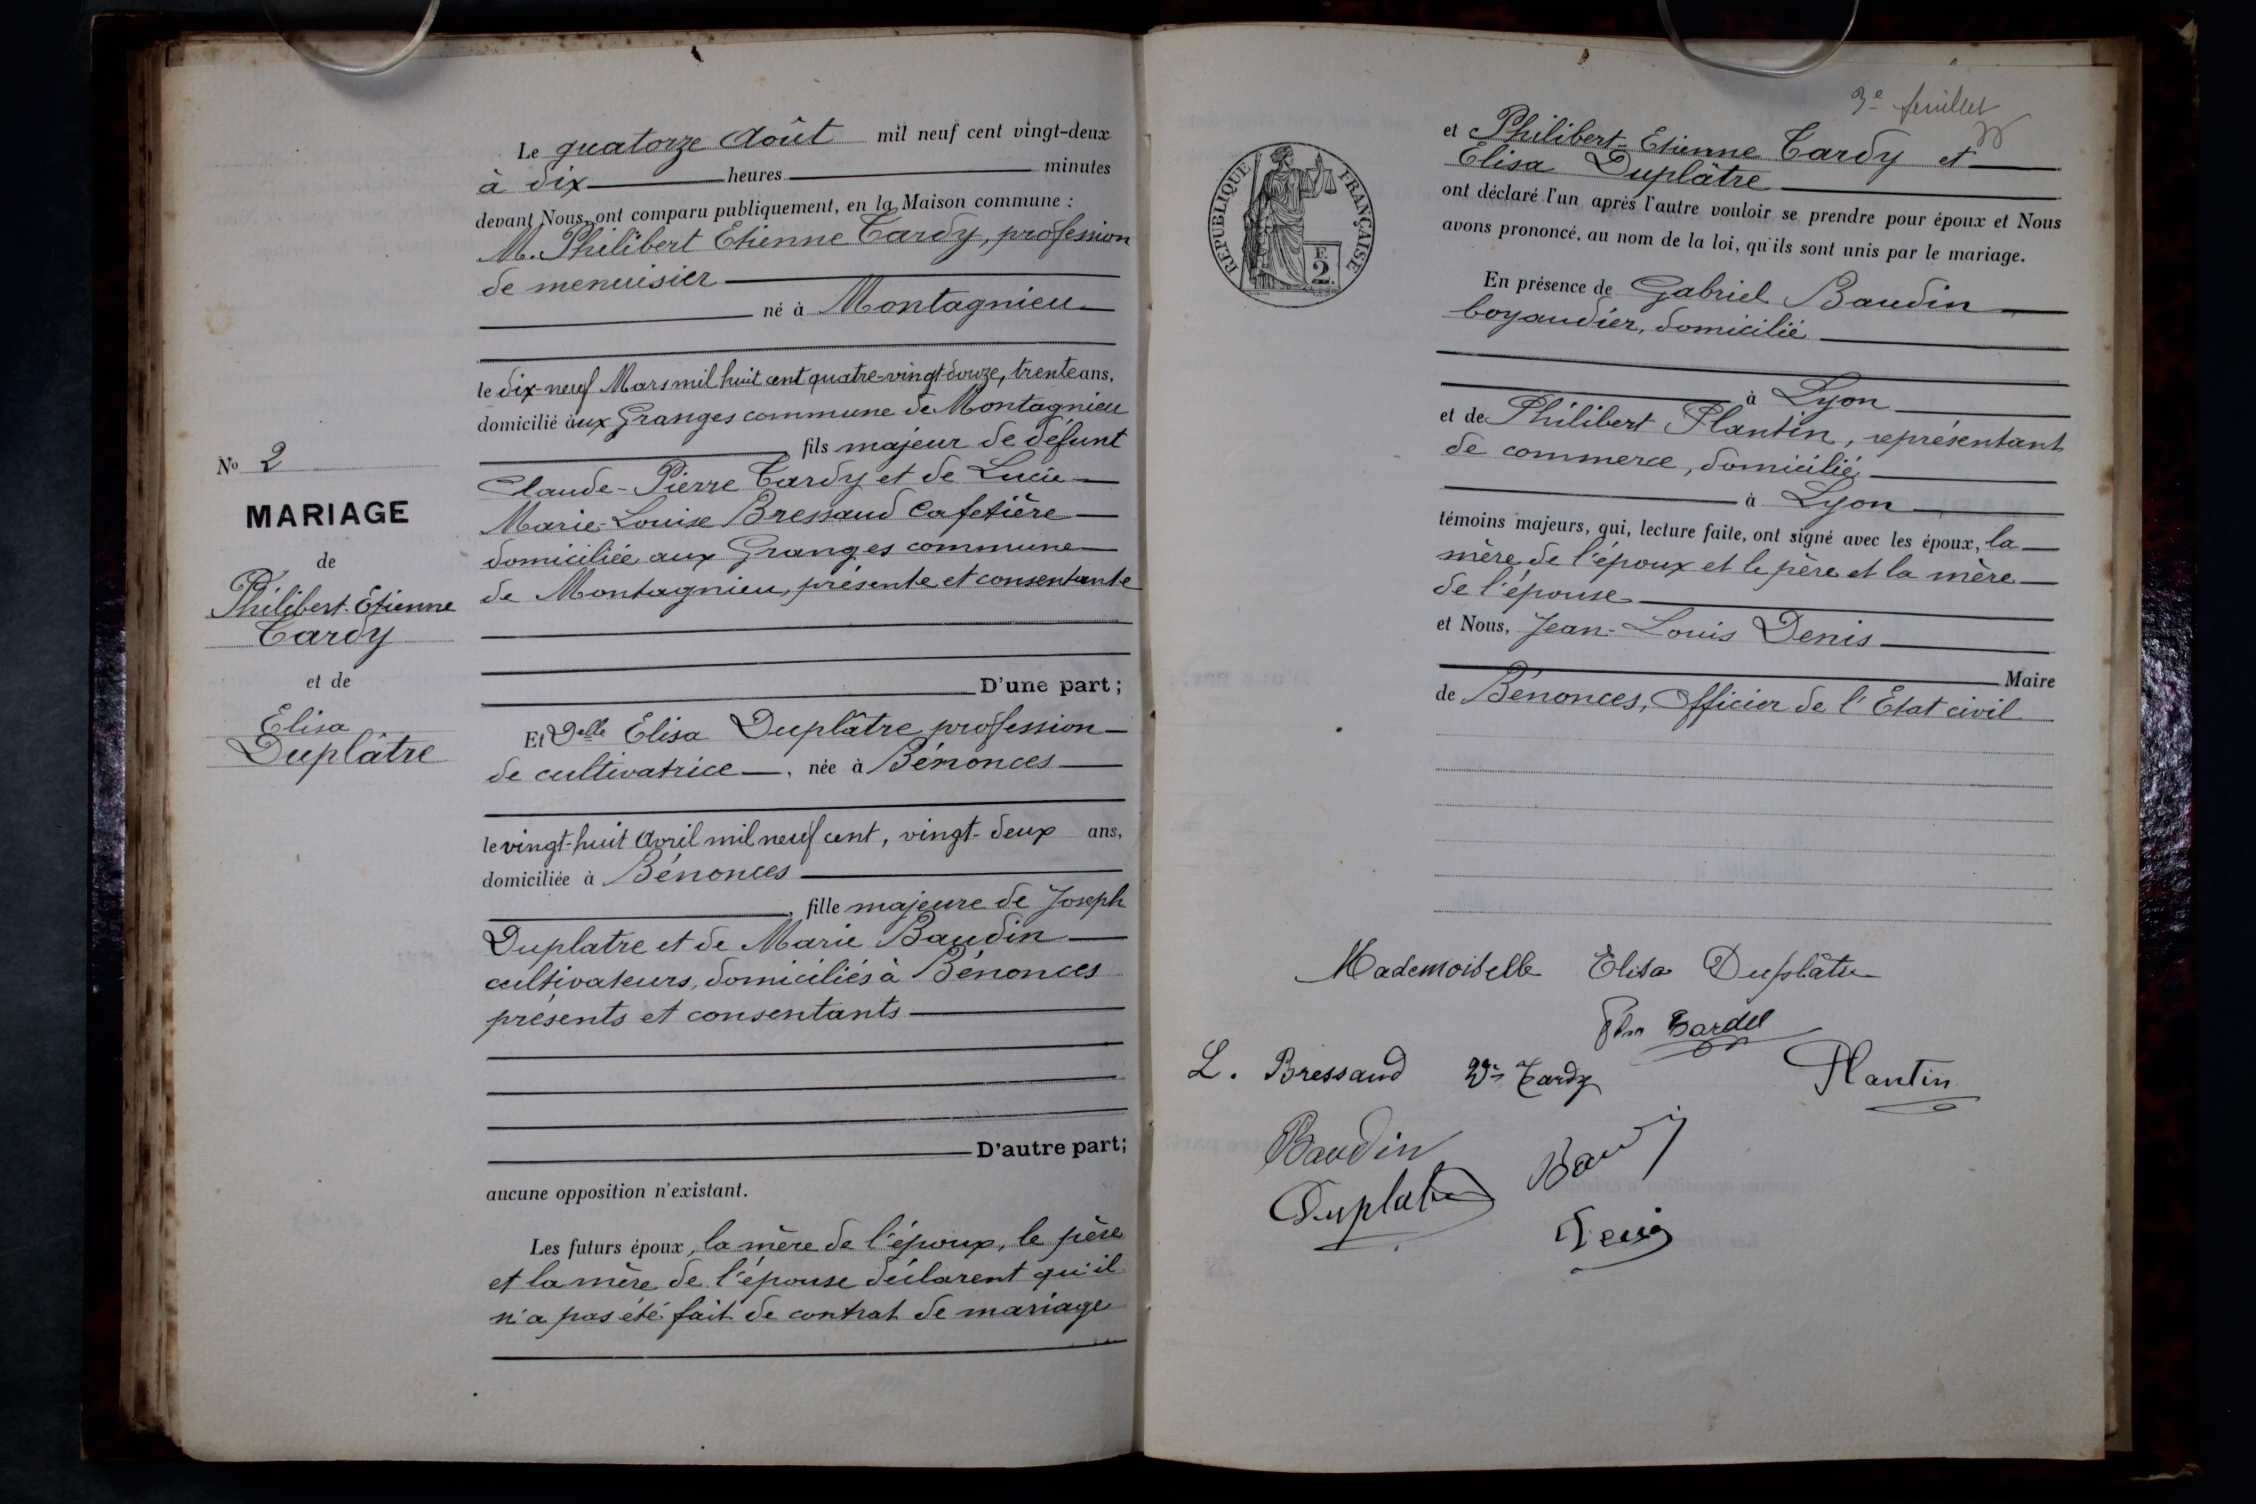 Le quatorze Août mil neuf cent vingt-deux
à dix heures minutes
devant Nous, ont comparu publiquement, en la Maison commune :
M. Philibert Etienne Tardy, profession
de menuisier
né à Montagnieu
le dix-neuf Mars mil huit cent quatre-vingt-douze, trente ans,
domicilié aux Granges commune de Montagnieu
fils majeur de défunt
Claude-Pierre Tardy et de Lucie
Marie-Louise Bressaud Cafetière
domiciliée aux Granges commune
de Montagnieu, présente et consentante
D'une part;
Et Delle Elisa Duplâtre profession
de cultivatrice, née à Bénonces
le vingt-huit Avril mil neuf cent, vingt-deux ans,
domiciliée à Bénonces
, fille majeure de Joseph
Duplatre et de Marie Baudin
cultivateurs, domiciliés à Bénonces
présents et consentants
D'autre part;
aucune opposition n'existant.
Les futurs époux, la mère de l'époux, le père
et la mère de l'épouse déclarent qu'il
n'a pas été fait de contrat de mariage
No 2
MARIAGE
de
Philibert-Etienne
Tardy
et de
Elisa
Duplâtre
3e feuillet
REPUBLIQUE FRANÇAISE
F.
2.
et Philibert-Etienne Tardy et
Elisa Duplâtre
ont déclaré l'un après l'autre vouloir se prendre pour époux et Nous
avons prononcé, au nom de la loi, qu'ils sont unis par le mariage.
En présence de Gabriel Baudin
boyaudier, domicilié
à Lyon
et de Philibert Plantin, représentant
de commerce, domicilié
à Lyon
témoins majeurs, qui, lecture faite, ont signé avec les époux, la
mère de l'époux et le père et la mère
de l'épouse
et Nous, Jean-Louis Denis
Maire
de Bénonces, Officier de l'Etat civil
Mademoiselle Elisa Duplâtre
L. Bressaud Ve Tardy
Plantin
Baudin
Duplatre
Denis